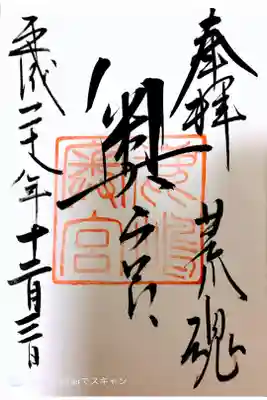 奉拝 荒魂
奥宮
平成二十八年十二月三日
でスキャン